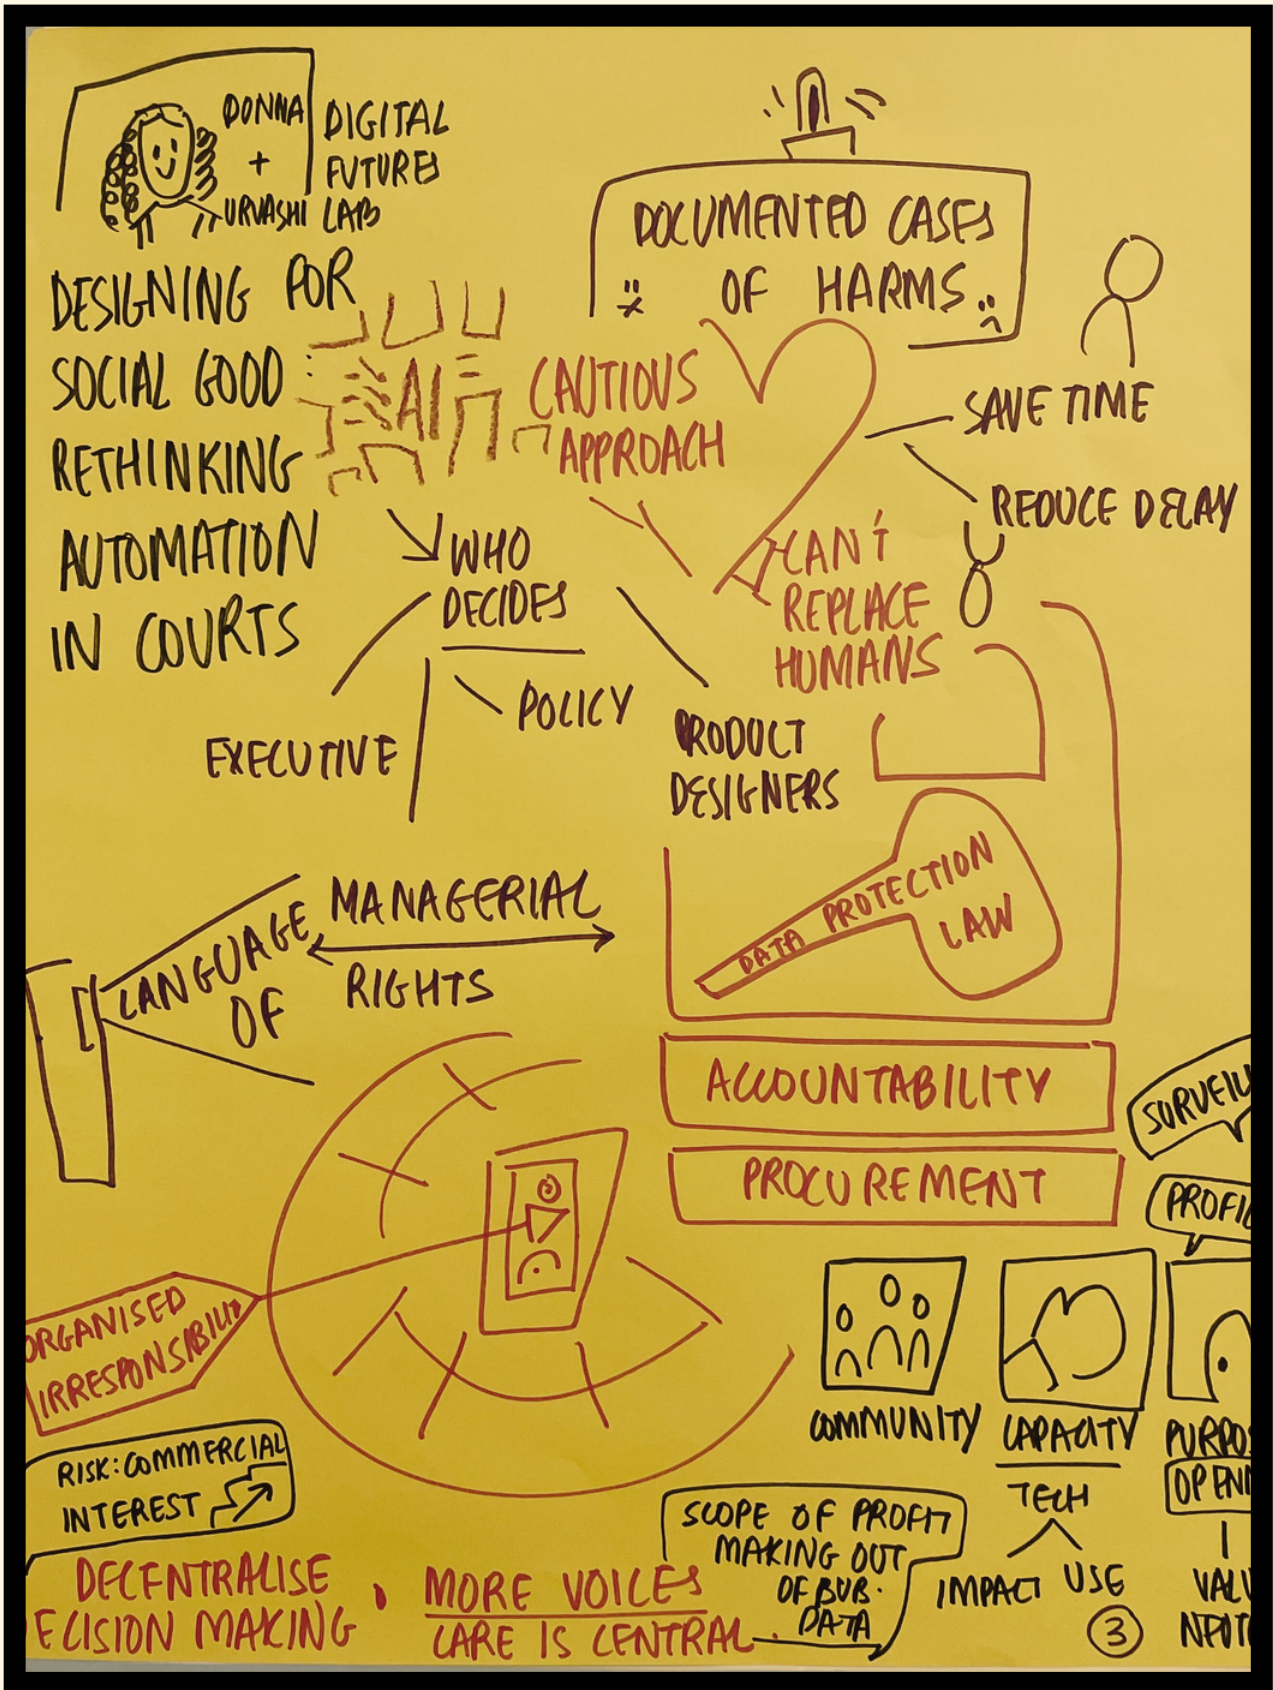 DONNA
+
URVASHI
DIGITAL
FUTURES
LAB
DESIGNING FOR
SOCIAL GOOD
RETHINKING
AUTOMATION
IN COURTS
AI
DOCUMENTED CASES
OF HARMS
CAUTIOUS
APPROACH
SAVE TIME
REDUCE DELAY
CAN'T
REPLACE
HUMANS
WHO
DECIDES
EXECUTIVE
POLICY
PRODUCT
DESIGNERS
LANGUAGE
OF
MANAGERIAL
RIGHTS
DATA PROTECTION
LAW
ACCOUNTABILITY
PROCUREMENT
SURVEIL
PROFIL
ORGANISED
IRRESPONSIBILITY
RISK: COMMERCIAL
INTEREST
COMMUNITY
CAPACITY
TECH
IMPACT USE
PURPOS
OPENN
VALU
SCOPE OF PROFIT
MAKING OUT
OF BUB.
DATA
DECENTRALISE
ECISION MAKING
. MORE VOICES
CARE IS CENTRAL.
3